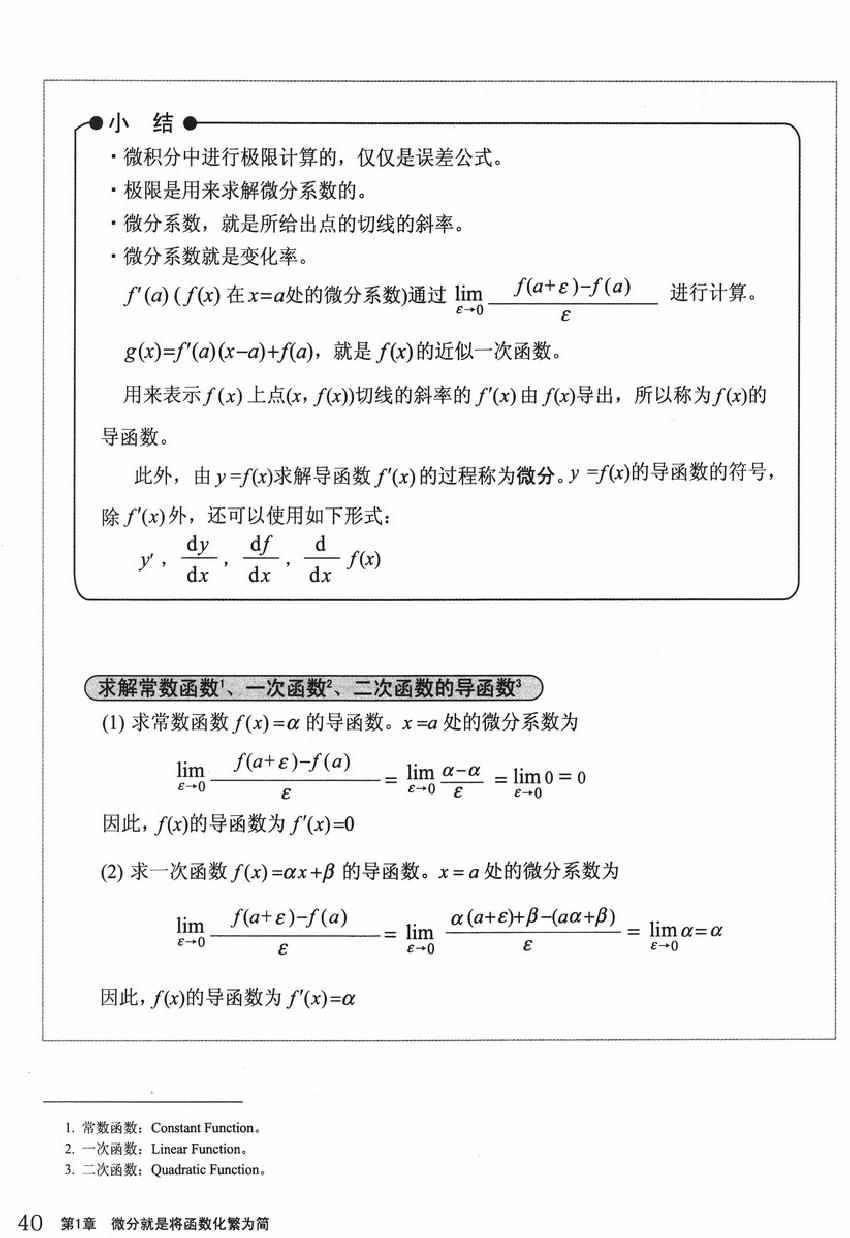 小 结
·微积分中进行极限计算的，仅仅是误差公式。
·极限是用来求解微分系数的。
·微分系数，就是所给出点的切线的斜率。
·微分系数就是变化率。
f′(a) ( f(x) 在x=a处的微分系数)通过 lim ε→0 f(a+ε)−f(a) / ε 进行计算。
g(x)=f′(a)(x−a)+f(a)，就是 f(x)的近似一次函数。
用来表示f(x) 上点(x, f(x))切线的斜率的 f′(x) 由 f(x)导出，所以称为f(x)的
导函数。
此外，由 y=f(x)求解导函数 f′(x) 的过程称为微分。y =f(x)的导函数的符号，
除 f′(x) 外，还可以使用如下形式：
y′， dy/dx， df/dx， d/dx f(x)
求解常数函数¹、一次函数²、二次函数的导函数³
(1) 求常数函数 f(x) =α 的导函数。x=a 处的微分系数为
lim ε→0 f(a+ε)−f(a) / ε = lim ε→0 α−α / ε = lim ε→0 0 = 0
因此，f(x)的导函数为 f′(x)=0
(2) 求一次函数 f(x) =αx+β 的导函数。x = a 处的微分系数为
lim ε→0 f(a+ε)−f(a) / ε = lim ε→0 α(a+ε)+β−(aα+β) / ε = lim ε→0 α=α
因此，f(x)的导函数为 f′(x)=α
1. 常数函数：Constant Function。
2. 一次函数：Linear Function。
3. 二次函数：Quadratic Function。
40 第1章 微分就是将函数化繁为简